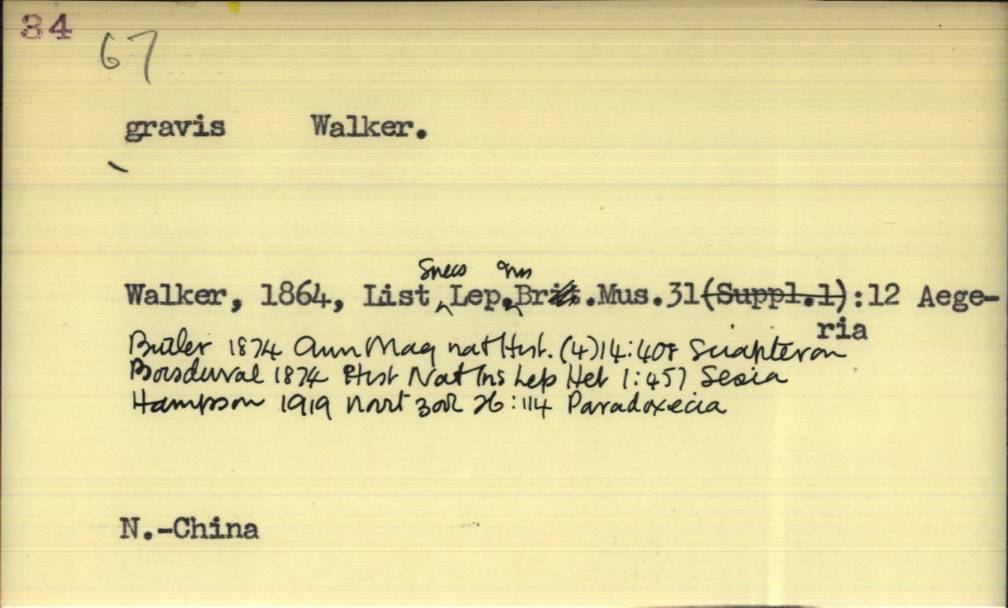 84
67
gravis Walker.
Specs Ins
Walker, 1864, List Lep. Brit. Mus. 31 (Suppl.1):12 Aege-
ria
Butler 1874 Ann Mag nat Hist. (4)14:408 Sciapteron
Boisduval 1874 Hist Nat Ins Lep Het 1:457 Sesia
Hampson 1919 Novit Zool 26:114 Paradoxecia
N.-China